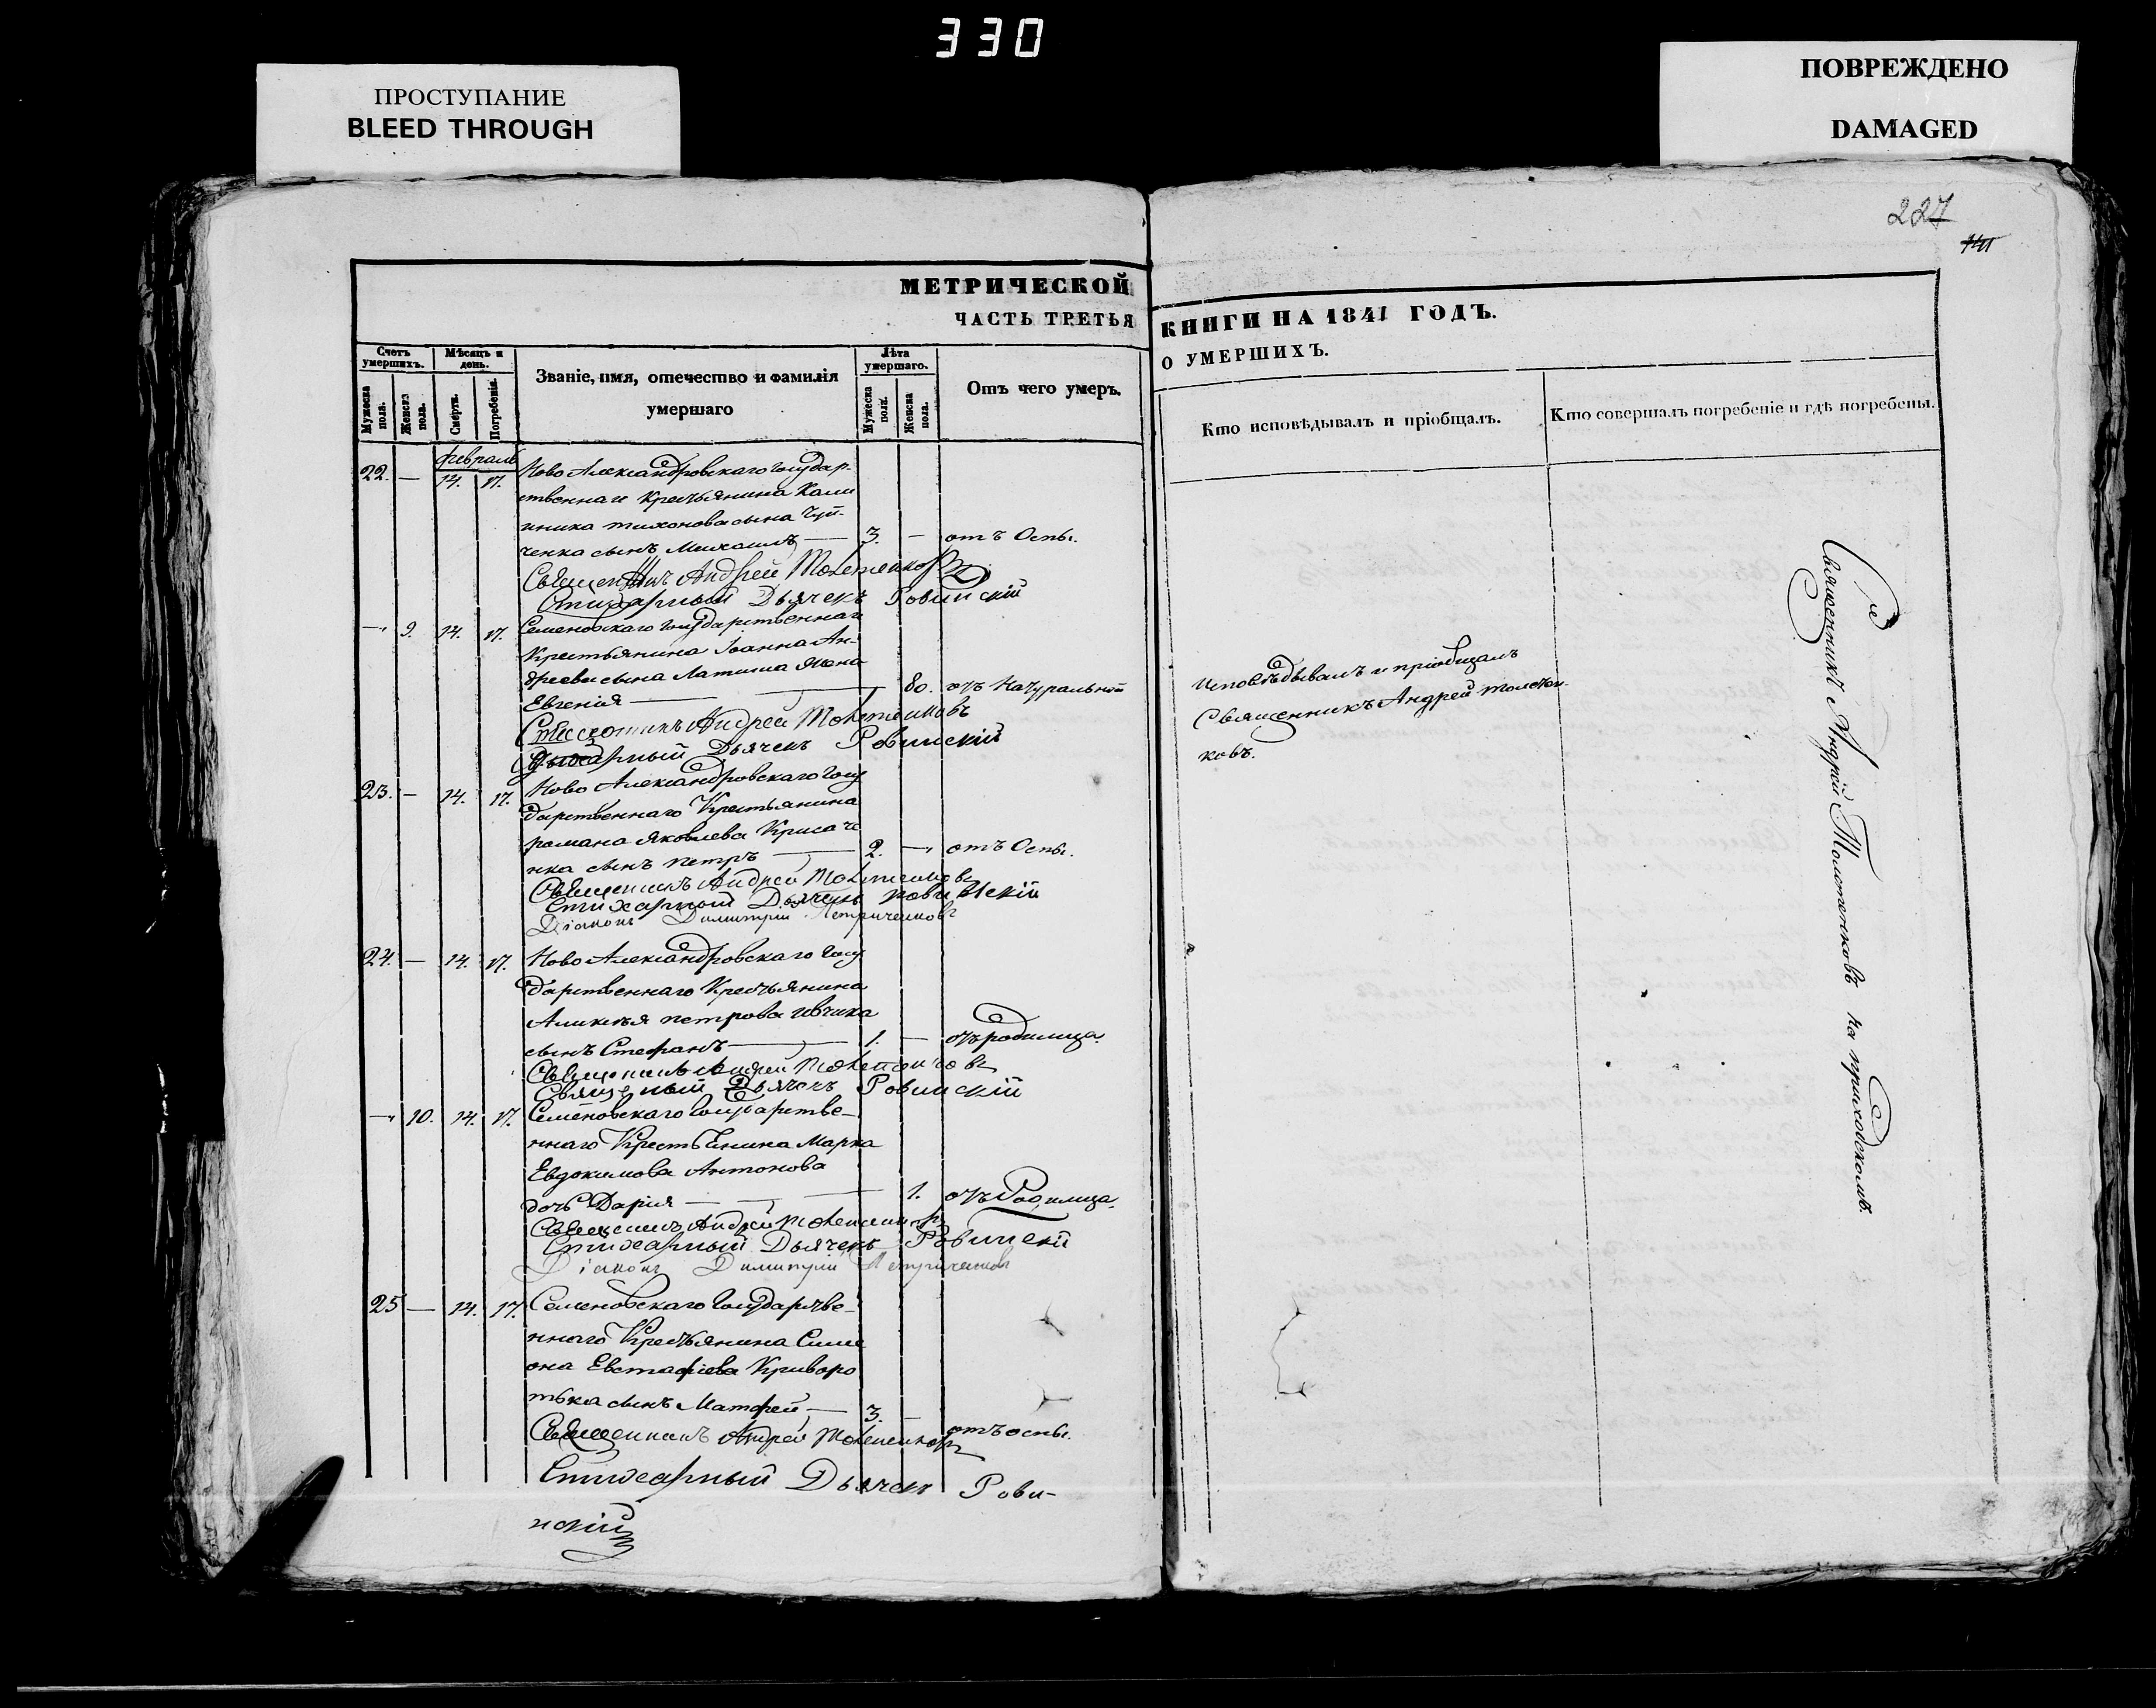 330
ПРОСТУПАНИЕ
BLEED THROUGH
ПОВРЕЖДЕНО
DAMAGED
227
МЕТРИЧЕСКОЙ
ЧАСТЬ ТРЕТЬЯ
Счетъ умершихъ.
Мѣсяцъ и день.
Званіе, имя, отечество и фамилія умершаго
Лѣта умершаго.
Отъ чего умеръ.
Мужеска пола.
Женска пола.
Смерти.
Погребенія.
Мужеска пола.
Женска пола.
февраль
22. — 14. 17. Ново Александровскаго государ-
ственнаго Крестьянина Кали
ника тихонова сына Чуй-
ченка сынъ Михаилъ — 3. — отъ Оспы.
Священникъ Андрей Толстенковъ
Стихарный Дьячекъ Ровинскій
— 9. 14. 17. Семеновскаго государственнаго
Крестьянина Іоанна Ан-
дреева сына Латыша жена
Евгенія — — 80. отъ Натуральной
Андрей Толстенковъ
Дьячекъ Ровинскій
23. — 14. 17. Ново Александровскаго госу
дарственнаго Крестьянина
романа Яковлева
нка сынъ петръ — 2. — отъ Оспы.
Священникъ Андрей Толстенковъ
Стихарный Дьячекъ Ровинскій
Діаконъ Димитрій Петриченковъ
24. — 14. 17. Ново Александровскаго госу
дарственнаго Крестьянина
петрова
сынъ Стефанъ — 1. — отъ родимца.
Священникъ Андрей Толстенковъ
Дьячекъ Ровинскій
— 10. 14. 17. Семеновскаго государстве-
ннаго Крестьянина Марка
Евдокимова Антонова
дочь Дарія — — 1. отъ Родимца.
Священникъ Андрей Толстенковъ
Стихарный Дьячекъ Ровинскій
Діаконъ Димитрій Петриченковъ
25 — 14. 17. Семеновскаго государстве-
ннаго Крестьянина Симе
она Евстафіева Криворо
тька сынъ Матфей — 3. — отъ оспы.
Священникъ Андрей Толстенковъ
Стихарный Дьячекъ Рови-
нскій
КНИГИ НА 1841 ГОДЪ.
О УМЕРШИХЪ.
Кто исповѣдывалъ и пріобщалъ.
Кто совершалъ погребеніе и гдѣ погребены.
Исповѣдывалъ и пріобщалъ
Священникъ Андрей толстен-
ковъ.
Священникъ Андрей Толстенковъ на приходскомъ.